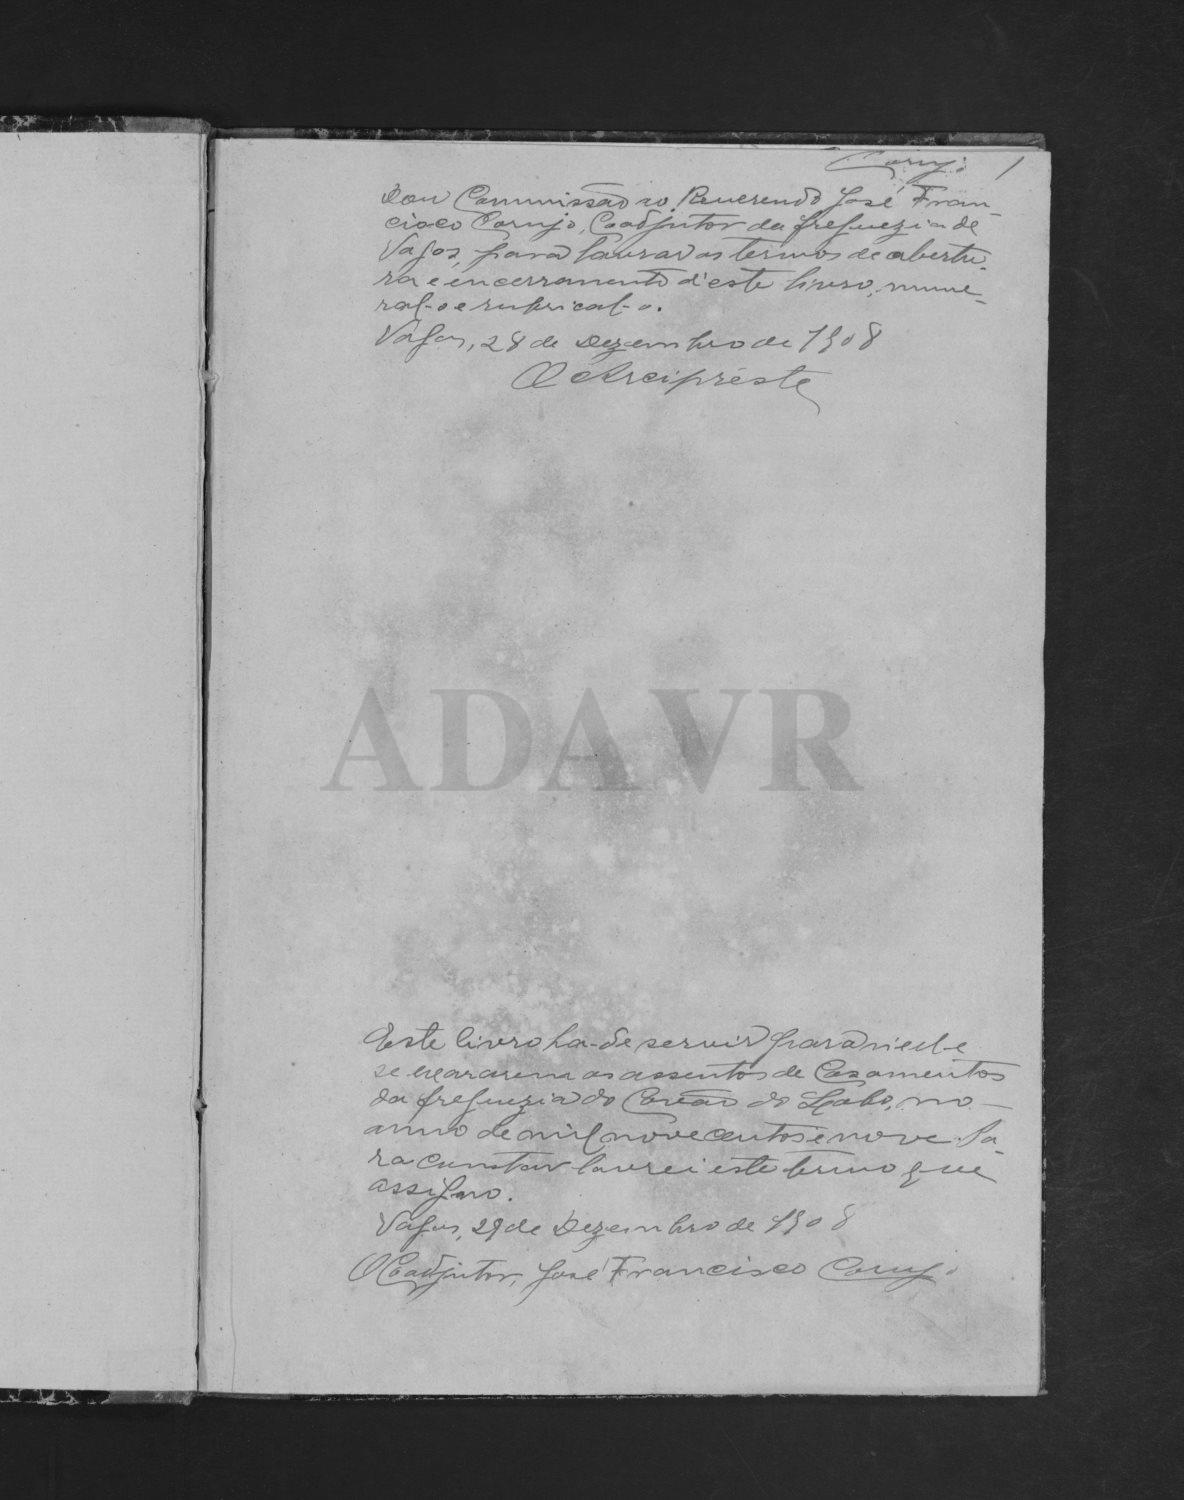 Corujo 1
Dou Commissão ao Reverendo José Fran-
cisco Corujo, Coadjutor da freguezia de
Vagos, para lavrar os termos de abertu-
ra e encerramento d'este livro, nume-
ral-o e rubrical-o.
Vagos, 28 de Dezembro de 1908
O Arcipreste
ADAVR
Este livro ha-de servir para n'elle
se exararem os assentos de Casamentos
da freguezia do Covão do Lobo, no
anno de mil novecentos e nove. Pa-
ra constar lavrei este termo que
assigno.
Vagos, 29 de Dezembro de 1908
O Coadjutor, José Francisco Corujo